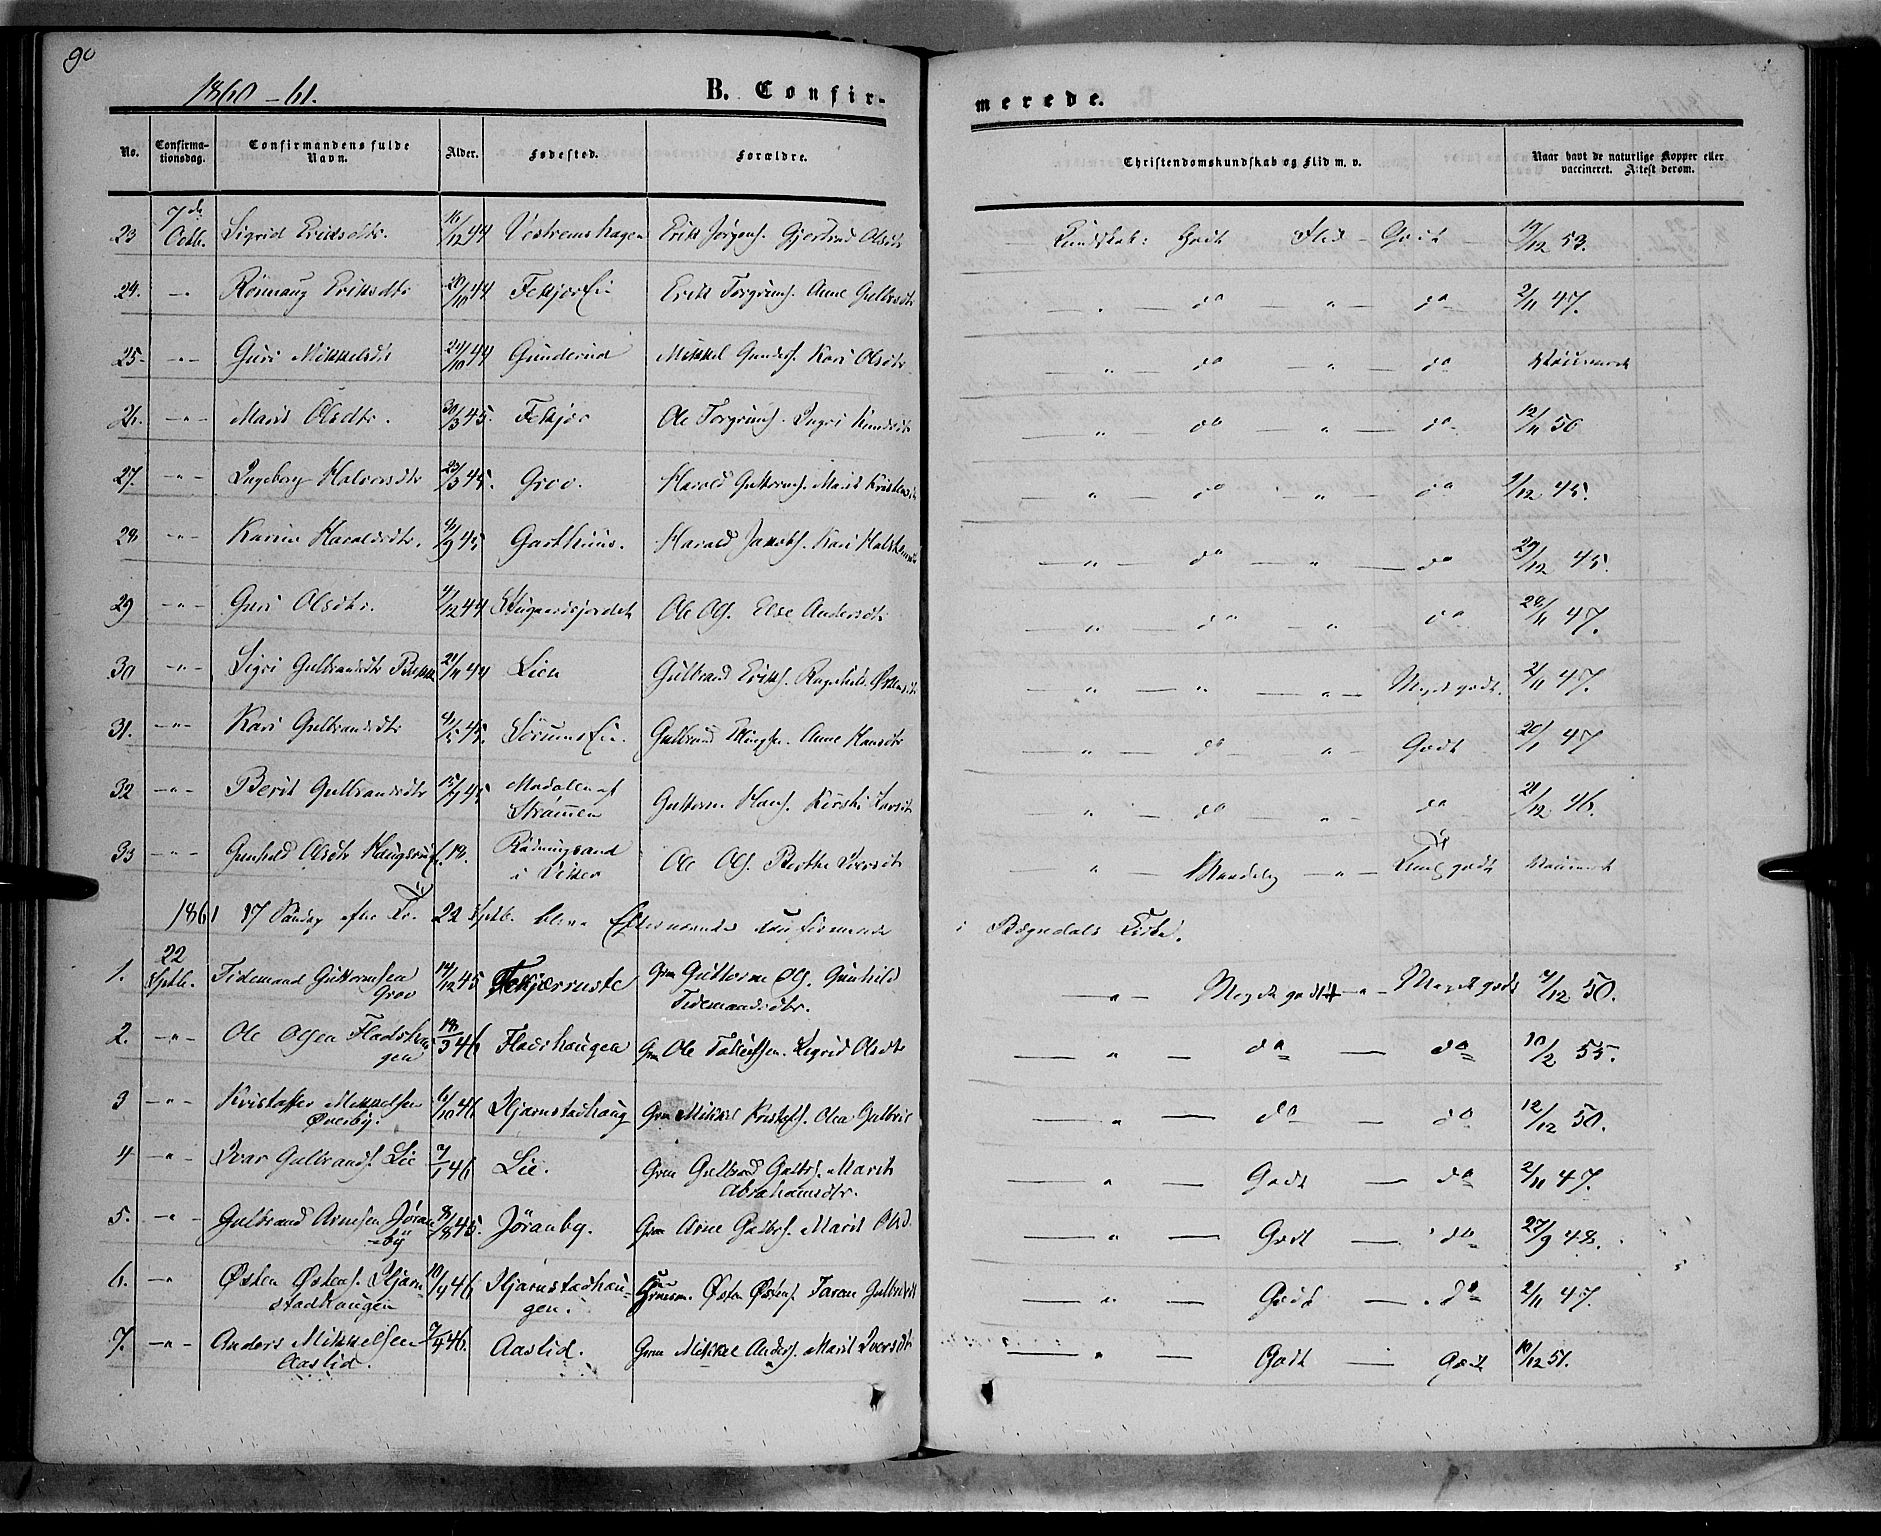 90
1860-61.
B. Confir-
merede.
No.
Confirma-
tionsdag.
Confirmandens fulde
Navn.
Alder.
Fødested.
Forældre.
Christendomskundskab og Flid m. v.
Naar havt de naturlige Kopper eller
vaccineret. Attest derom.
23 7de Octb. Sigrid Eriksdtr. 16/12 44 Erik Jørgens. Gjertrud Olsdtr Kundskab: Godt Flid - Godt 19/12 53.
24. -"- Rønnaug Eriksdtr 20/10 44 Fekjær Eie Erik Torgrims. Anne Gulbrsdtr " do " do 2/11 47.
25- -"- Guri Mikkelsdtr 24/10 44 Gunderud Mikkel Gunders. Kari Olsdtr " do " do
26. -"- Marit Olsdtr. 30/3 45. Fekjær Ole Torgrims. Ingri Knudsdtr " do " do 12/11 50
27. -"- Ingeborg Halvorsdtr 23/3 45. Grov. Harald Guttorms. Marit " do " do 9/12 45.
28 -"- Karine Haraldsdtr. 45 Garthuus. Harald Jakobs. Kari " do " do 29/12 45.
29 -"- Guri Olsdtr. 4/12 44 Ole Ols. Else Andersdtr " do " do 20/11 47.
30 -"- Sigri Gulbrandsdtr 21/11 44 Lien Gulbrand Eriks. Ragnhild Østensdtr " " " Meget godt. 2/11 47.
31. -"- Kari Gulbrandsdtr 45. Sørums Eie. Gulbrand Anne Hansdtr " do " Godt 20/1 47
32 -"- Berit Gulbrandsdtr 45 Modalen af
Strømmen Guttorm Hans. Kirsti Larsdtr " do " do 21/12 46.
33 -"- Gunhild Olsdtr 18.
i Ole Ols. Berthe Iversdtr " Maadelig -"- godt
1861 17 Søndag efter Tr. 22 Septb. bleve Efternævnte confirmerede
i Begndals Kirke.
1. 22 Septb. Tidemand Guttormsen
Grov 14/12 45 Fekjærruste Grm Guttorm Ols. Gunhild
Tidemandsdtr. -"- Meget godt -"- Meget godt 7/12 50.
2. -"- Ole Olsen Fladshau
gen 18/3 46 Fladshaugen Grm Ole Sigrid Olsdtr " do do 10/2 55.
3 -"- Kristoffer Mikkelsen
Øverby. 6/10 46 Hjarnstadhaug Grm Mikkel Kristoffs. Olea Gulbrd " do do 12/12 50.
4 -"- Ivar Gulbrands. Lie 7/1 46 Lie. Grm Gulbrand Gulbs. Marit
Abrahamsdtr. " Godt do 2/11 47.
5. -"- Gulbrand Arnesen Jøran
-by 8/8 45. Jøranby. Grm Arne Gulbs. Marit Olsd. " Godt do 27/9 48.
6. -"- Østen Østens. Hjarn
stadhaugen 10/4 46 Hjarnstadhau-
gen. Østen Østens. Taran Gulbrdsdtr " Godt do 2/11 47.
7. -"- Anders Mikkelsen
Aaslid. 7/4 46. Aaslid. Grm Mikkel Anders. Marit Iversdtr " Godt Godt 10/12 51.